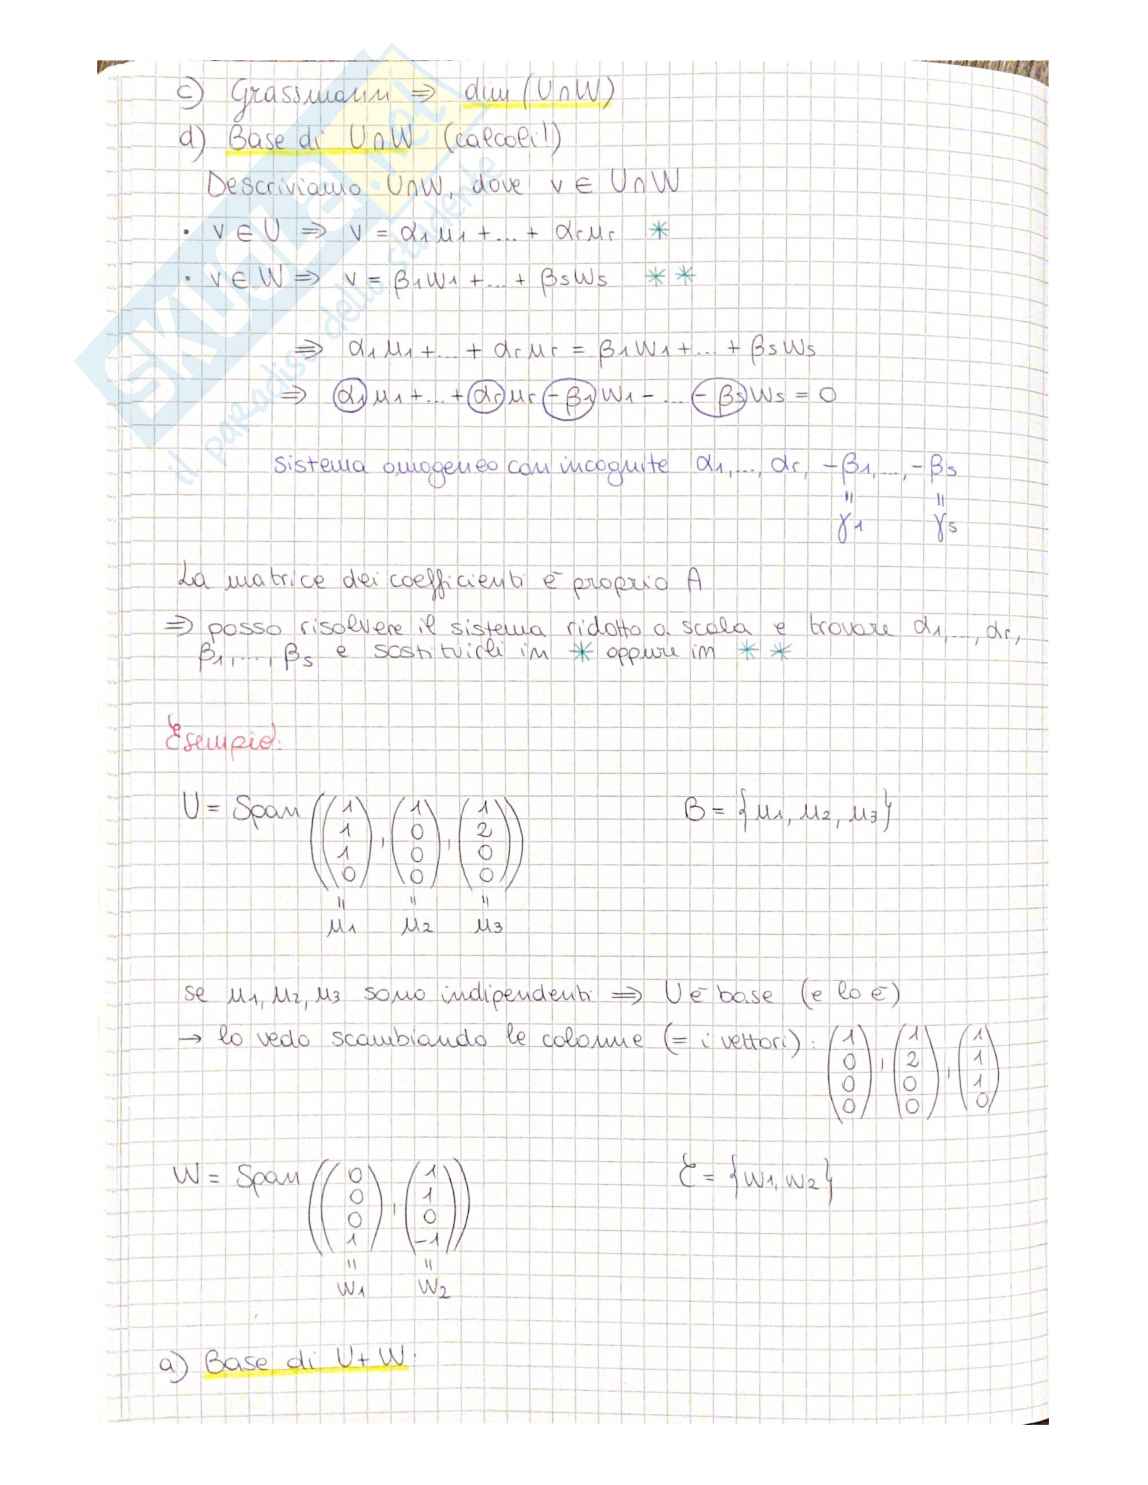 c) Grassmann ⇒ dim (U∩W)
d) Base di U∩W (calcoli!)
Descriviamo U∩W, dove v ∈ U∩W
• v ∈ U ⇒ v = α1μ1 + ... + αrμr *
• v ∈ W ⇒ v = β1w1 + ... + βsws **
⇒ α1μ1 + ... + αrμr = β1w1 + ... + βsws
⇒ α1μ1 + ... + αrμr -β1w1 - ... -βsws = 0
sistema omogeneo con incognite α1, ..., αr, -β1, ..., -βs
= =
γ1 γs
La matrice dei coefficienti è proprio A
⇒ posso risolvere il sistema ridotto a scala e trovare α1, ..., αr,
β1, ..., βs e sostituirli in * oppure in **
Esempio:
U = Span ((1 1 1 0), (1 0 0 0), (1 2 0 0)) B = {μ1, μ2, μ3}
= = =
μ1 μ2 μ3
se μ1, μ2, μ3 sono indipendenti ⇒ U è base (e lo è)
→ lo vedo scambiando le colonne (= i vettori): (1 0 0 0), (1 2 0 0), (1 1 1 0)
W = Span ((0 0 0 1), (1 1 0 -1)) C = {w1, w2}
= =
w1 w2
a) Base di U+W.
SKUOLA.net
il paradiso dello studente